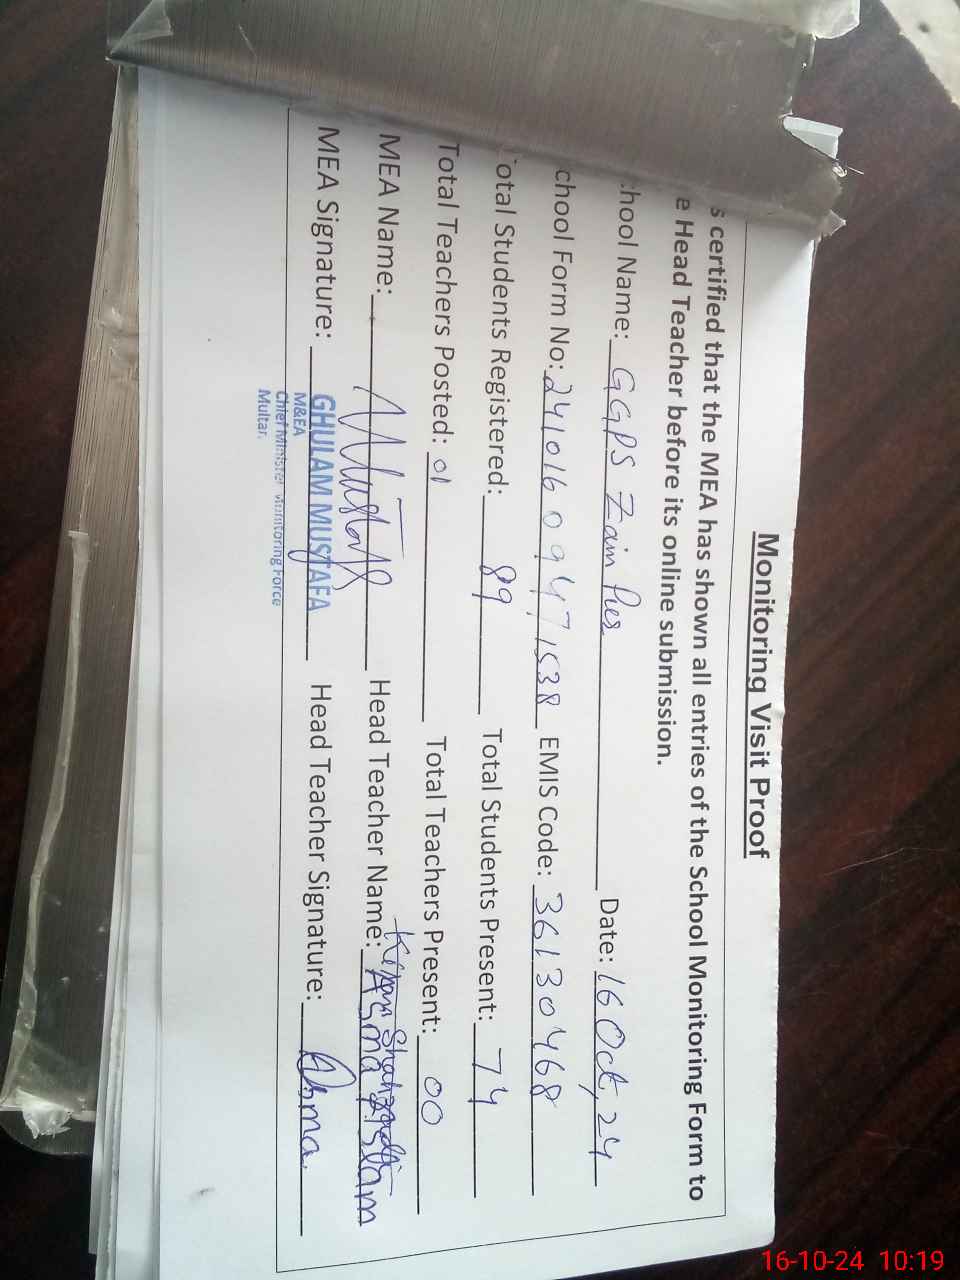 Monitoring Visit Proof
s certified that the MEA has shown all entries of the School Monitoring Form to
e Head Teacher before its online submission.
hool Name: GGPS Zain Pur Date: 16 Oct, 24
chool Form No: 241016 09471538 EMIS Code: 36130468
otal Students Registered: 89 Total Students Present: 74
Total Teachers Posted: 01 Total Teachers Present: 00
MEA Name: Head Teacher Name: Asma Aslam
MEA Signature: Head Teacher Signature: Asma
GHULAM MUSTAFA
M&EA
Chief Minister Monitoring Force
Multan.
16-10-24 10:19